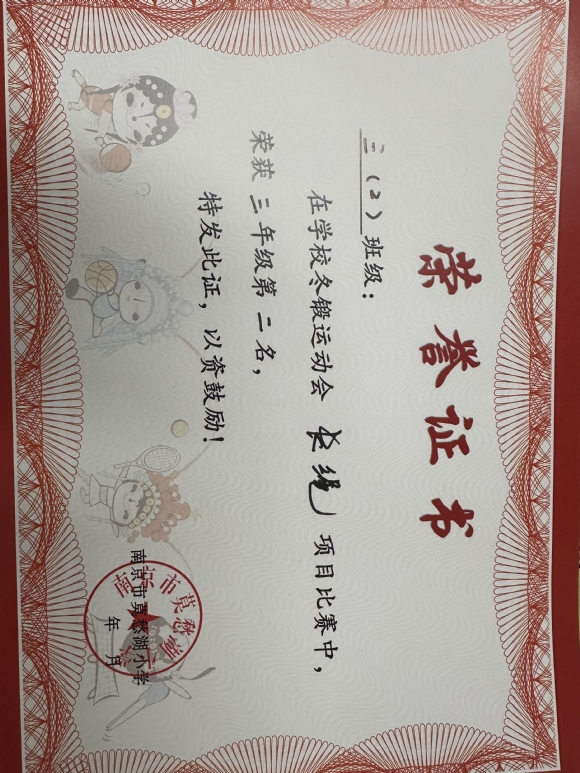 荣誉证书
三（2）班级：
在学校冬锻运动会 长绳 项目比赛中，
荣获 三 年级第 二 名，
特发此证，以资鼓励！
南京市莫愁湖小学
年 月